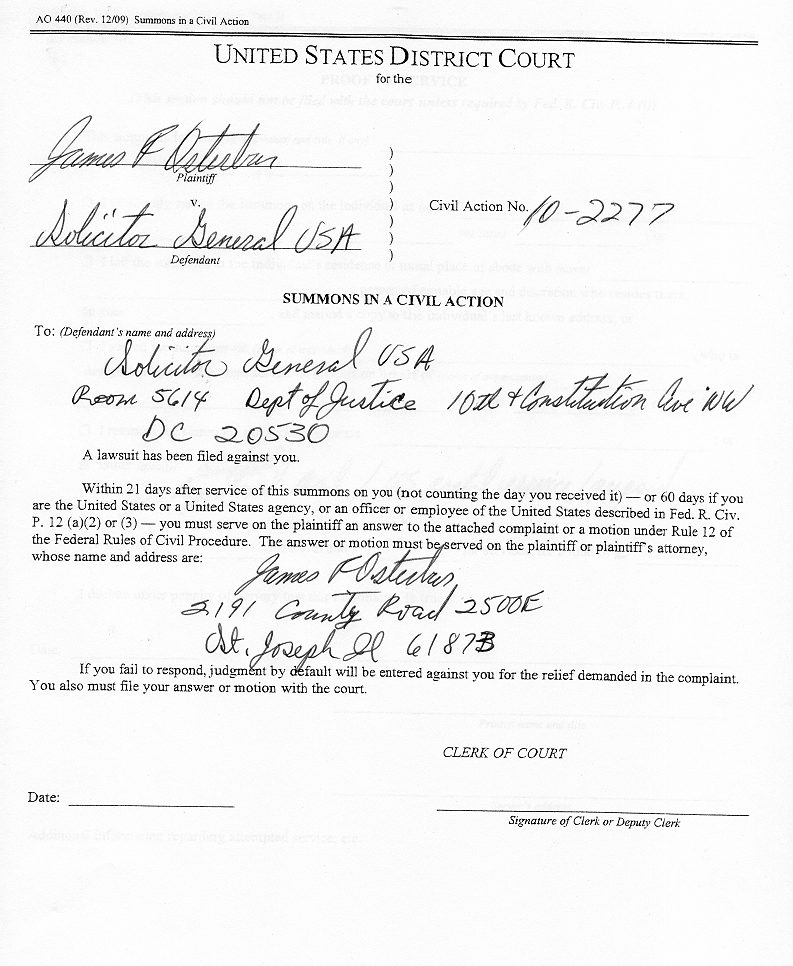 AO 440 (Rev. 12/09) Summons in a Civil Action
UNITED STATES DISTRICT COURT
for the
James F Osterbur
Plaintiff
v.
Solicitor General USA
Defendant
)
)
)
)
)
)
)
Civil Action No. 10-2277
SUMMONS IN A CIVIL ACTION
To: (Defendant's name and address)
Solicitor General USA
Room 5614 Dept of Justice 10th & Constitution Ave NW
DC 20530
A lawsuit has been filed against you.
Within 21 days after service of this summons on you (not counting the day you received it) — or 60 days if you
are the United States or a United States agency, or an officer or employee of the United States described in Fed. R. Civ.
P. 12 (a)(2) or (3) — you must serve on the plaintiff an answer to the attached complaint or a motion under Rule 12 of
the Federal Rules of Civil Procedure. The answer or motion must be served on the plaintiff or plaintiff's attorney,
whose name and address are:
James F Osterbur,
2191 County Road 2500E
St. Joseph Il 61873
If you fail to respond, judgment by default will be entered against you for the relief demanded in the complaint.
You also must file your answer or motion with the court.
CLERK OF COURT
Date:
Signature of Clerk or Deputy Clerk